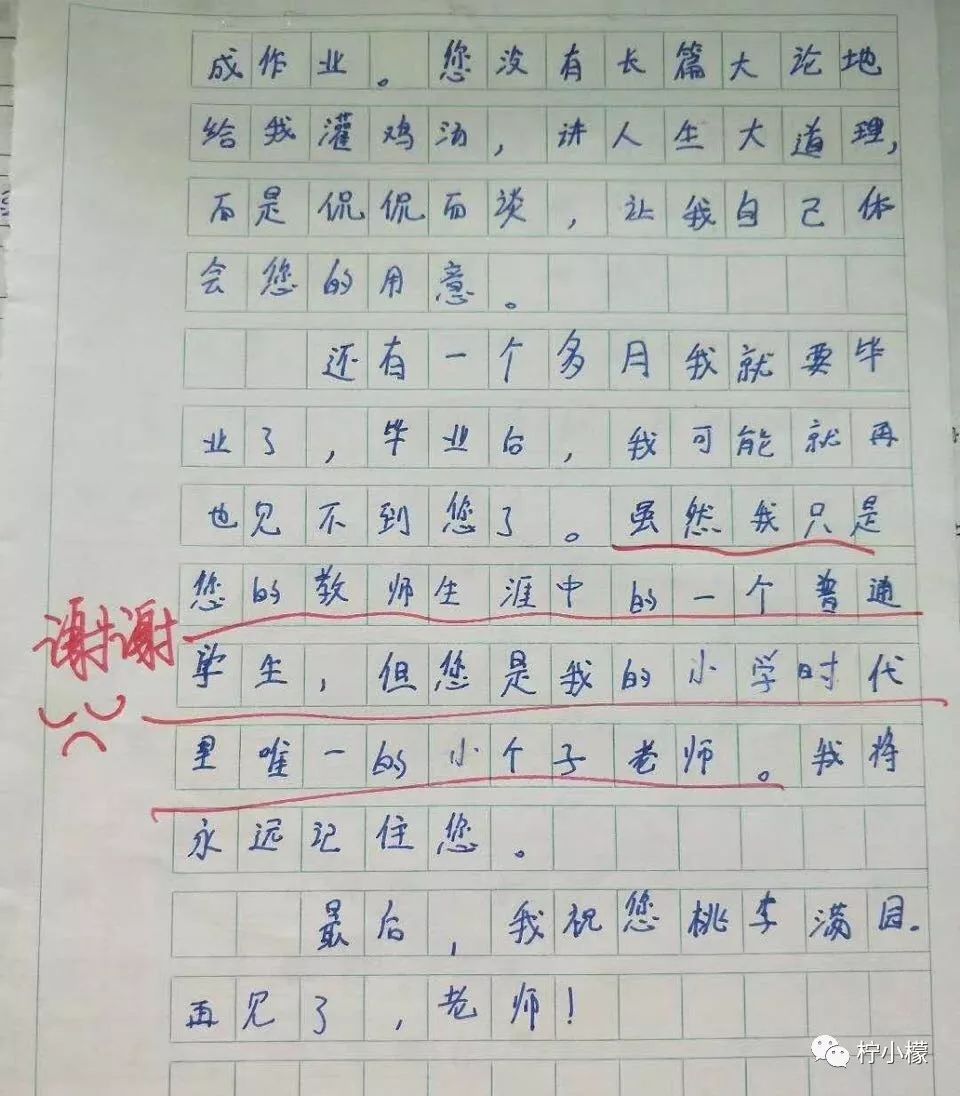 成作业。您没有长篇大论地
给我灌鸡汤，讲人生大道理，
而是侃侃而谈，让我自己体
会您的用意。
还有一个多月我就要毕
业了，毕业后，我可能就再
也见不到您了。虽然我只是
您的教师生涯中的一个普通
谢谢
学生，但您是我的小学时代
里唯一的小个子老师。我将
永远记住您。
最后，我祝您桃李满园.
再见了，老师！
柠小檬